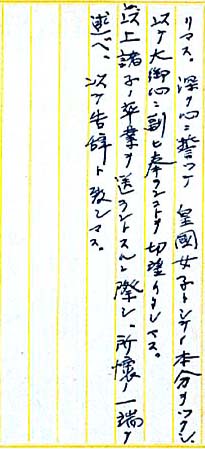 リマス。深ク心ニ誓ツテ 皇國女子トシテノ本分ヲツクシ、
以テ大御心ニ副ヒ奉ランコトヲ切望シテヰマス。
以上諸子ノ卒業ヲ送ラントスルニ際シ、所懐ノ一端ヲ
述ベ、以テ告辞ト致シマス。